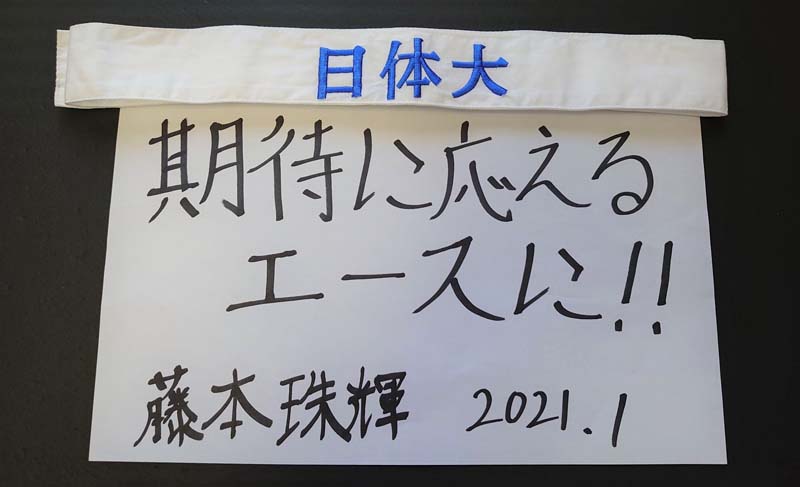 日体大
期待に応える
エースに!!
藤本珠輝 2021.1